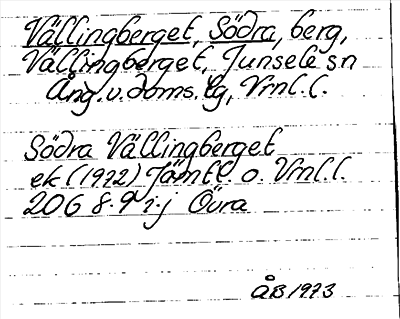 Vällingberget, Södra, berg,
Vällingberget, Junsele sn
Ång. v. doms. lg, Vrnl. l.
Södra Vällingberget
ek (1972) Jämtl. o. Vrnl. l.
206 8. 9 i-j Övra
ÅB 1973